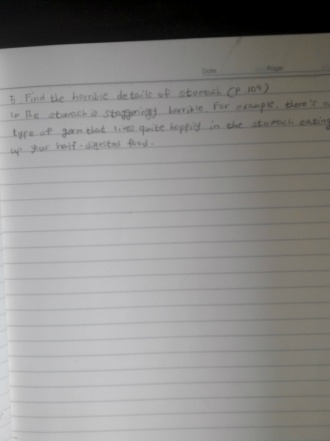 Date Page
Find the horrible details of stomach (P. 109)
The stomach is staggeringly horrible. For example, there's a
type of germ that lives quite happily in the stomach eating
up your half-digested food.